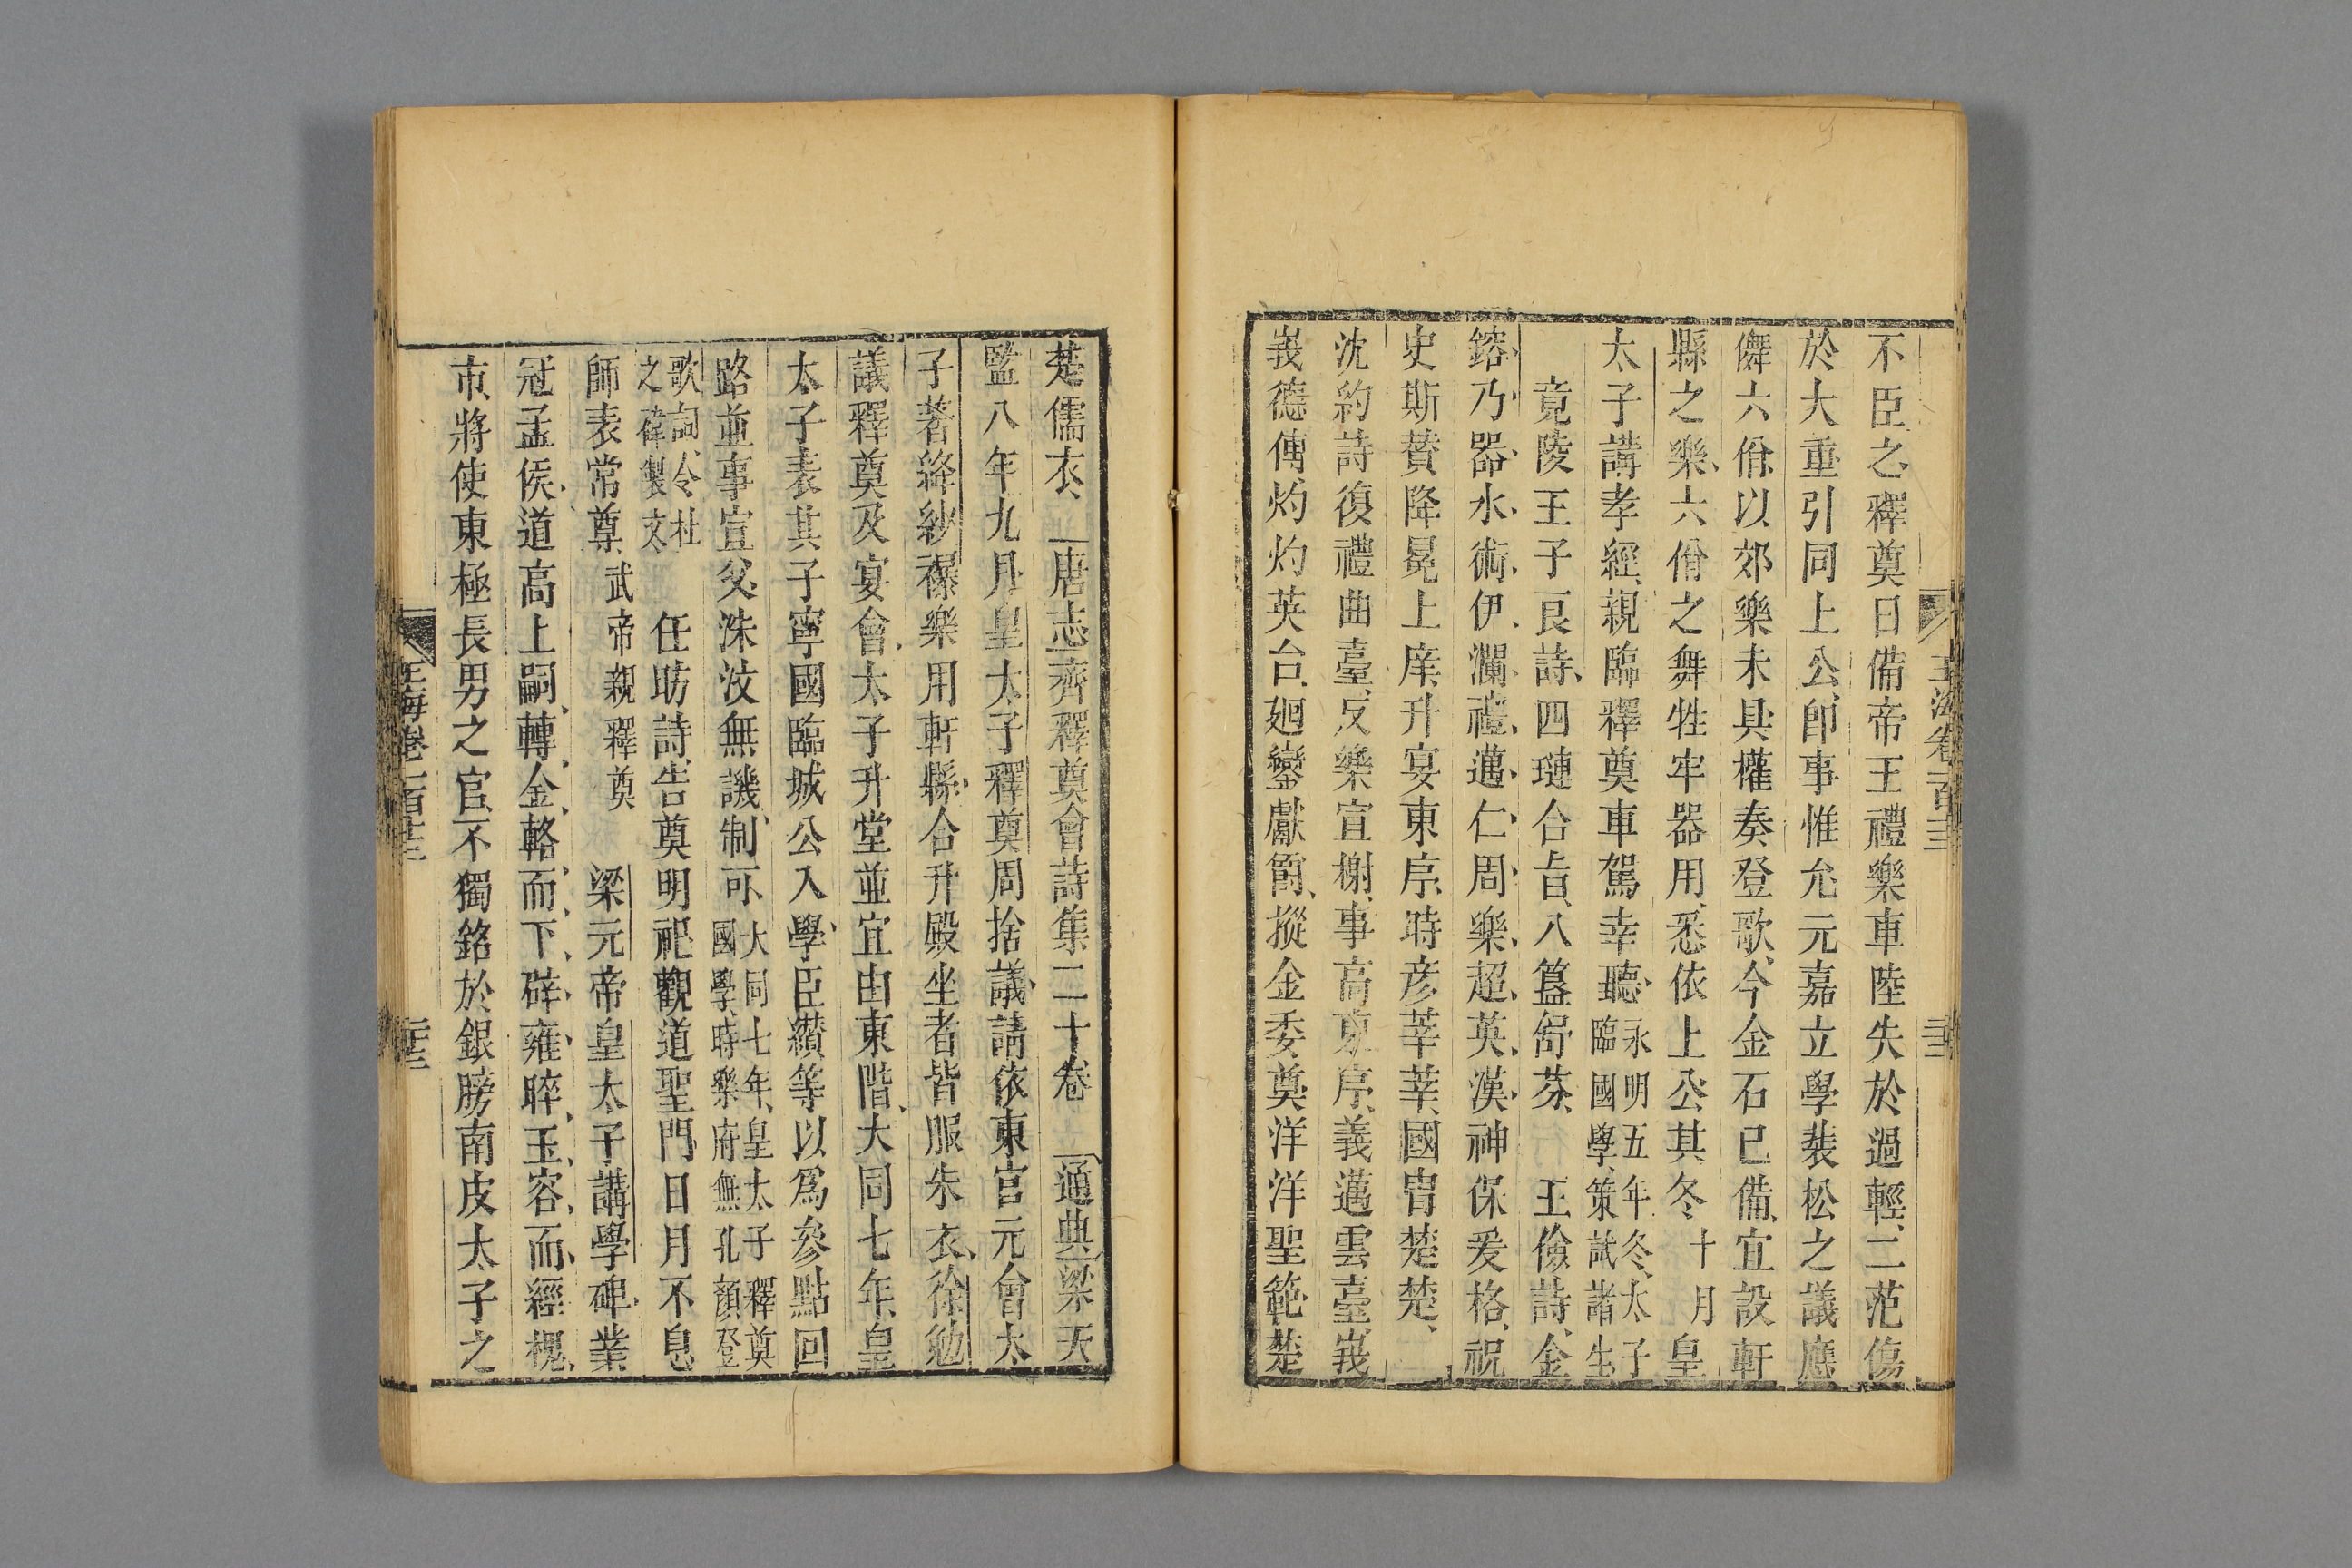 不臣之釋奠日備帝王禮樂車陸失於過輕二范傷
於大重引同上公卽事惟允元嘉立學裴松之議應
儛六佾以郊樂未具權奏登歌今金石已備宜設軒
縣之樂六佾之舞牲牢器用悉依上公其冬十月皇
太子講孝經親臨釋奠車駕幸聽永明五年冬太子
臨國學策試諸生
竟陵王子良詩四璉合旨八簋舒芬 王儉詩金
鎔乃器水術伊瀾禮邁仁周樂超英漢神保爰格祝
史斯贊降冕上庠升宴東序時彥莘莘國胄楚楚
沈約詩復禮曲臺反樂宣榭事高東序義邁雲臺峩
峩德傅灼灼英台廻鑾獻爵摐金委奠洋洋聖範楚
玉海卷一百十三
楚儒衣 唐志齊釋奠會詩集二十卷 通典梁天
監八年九月皇太子釋奠周捨議請依東宫元會太
子著絳紗襮樂用軒縣合升殿坐者皆服朱衣徐勉
議釋奠及宴會太子升堂並宜由東階大同七年皇
太子表其子寧國臨城公入學臣纘等以爲參點回
路並事宣父洙汶無譏制可大同七年皇太子釋奠
國學時樂府無孔顏登
歌詞令杜
之偉製文 任昉詩告奠明祀觀道聖門日月不息
師表常尊武帝親釋奠 梁元帝皇太子講學碑業
冠孟侯道高上嗣轉金輅而下辟雍晬玉容而經槐
市將使東極長男之官不獨銘於銀牓南皮太子之
玉海卷一百十三